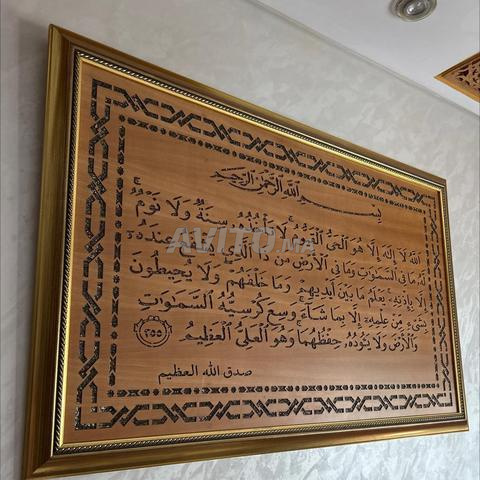 بِسْمِ اللَّهِ الرَّحْمَٰنِ الرَّحِيمِ
اللَّهُ لَا إِلَٰهَ إِلَّا هُوَ الْحَيُّ الْقَيُّومُ لَا تَأْخُذُهُ سِنَةٌ وَلَا نَوْمٌ
لَهُ مَا فِي السَّمَٰوَٰتِ وَمَا فِي الْأَرْضِ مَن ذَا الَّذِي يَشْفَعُ عِندَهُ
إِلَّا بِإِذْنِهِ يَعْلَمُ مَا بَيْنَ أَيْدِيهِمْ وَمَا خَلْفَهُمْ وَلَا يُحِيطُونَ
بِشَيْءٍ مِّنْ عِلْمِهِ إِلَّا بِمَا شَاءَ وَسِعَ كُرْسِيُّهُ السَّمَٰوَٰتِ
وَالْأَرْضَ وَلَا يَئُودُهُ حِفْظُهُمَا وَهُوَ الْعَلِيُّ الْعَظِيمُ ٢٥٥
صدق الله العظيم
AVITO.MA